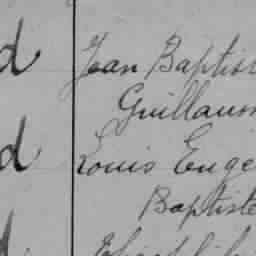 d Jean Baptis
Guillaum
d Louis Euge
Baptiste